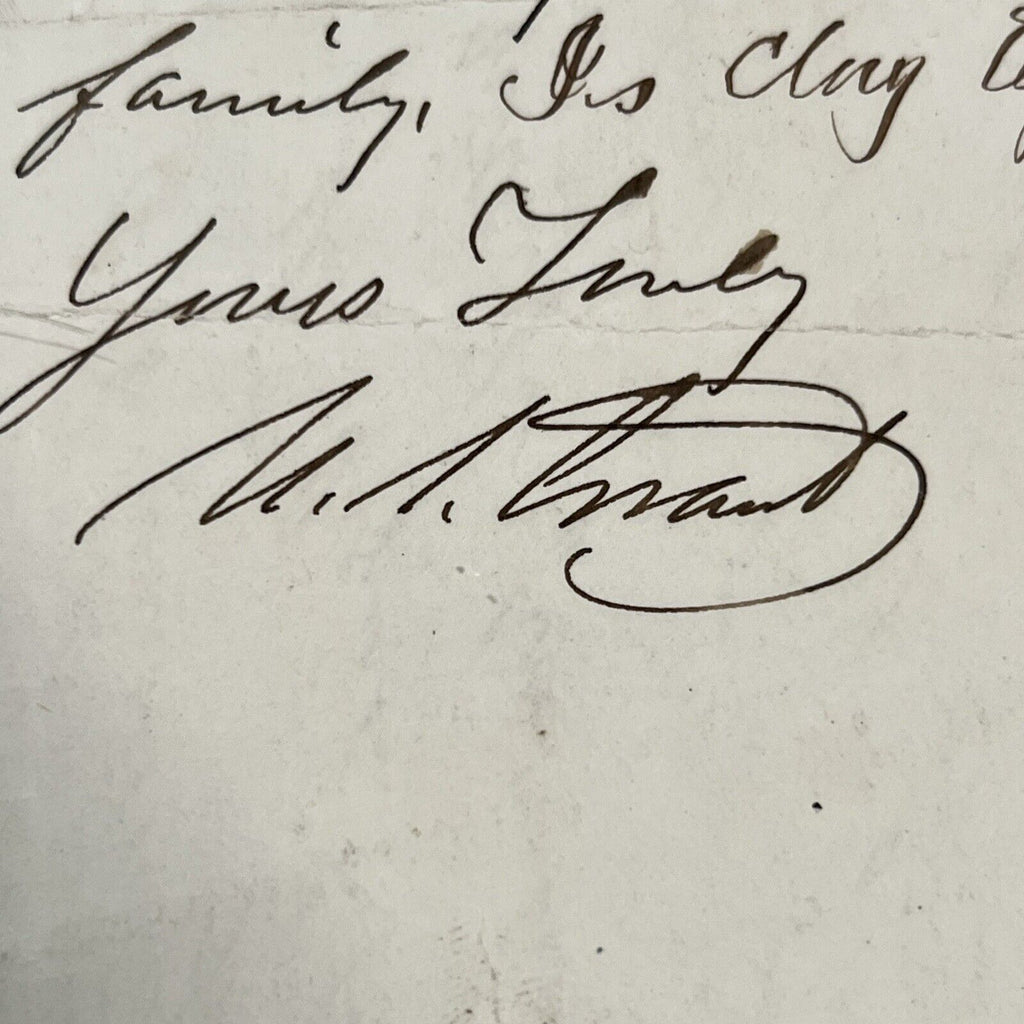 family. Is Clay
Yours Truly
U. S. Grant